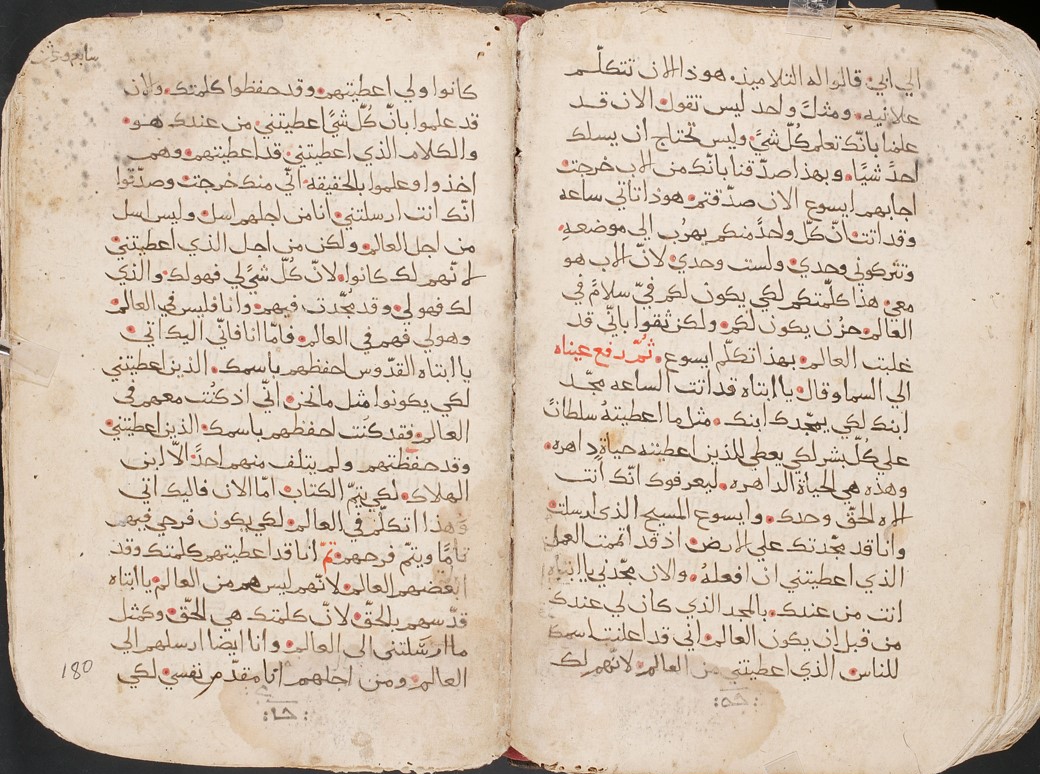 الي ابي. قالوا له التلاميذ. هوذا الان تتكلّم
علانيه. ومثلً واحد ليس تقول الان قد
علمنا بانّك تعلم كُلّ شيً وليس تحتاج ان يسلك
احدً شيًا. وبهذا صدّقنا بانّك من الاب خرجت
اجابهم ايسوع الان صدّقتم. هوذا تاتي ساعه
وقد اتت انّ كلّ واحدً منكم يهرُب الي موضعهِ.
وتتركوني وحدي. ولست وحدي لانّ الاب هو
معي. هذا كلّمتكم لكي يكون لكم فيّ سلامً في
العالم حزن يكون لكم. ولكن ثقوا بانّي قد
غلبت العالم. بهذا تكلّم ايسوع. ثمّ رفع عيناه
الي السما وقال يا ابتاه قد اتت الساعه مجّد
ابنك لكي يمجّدك ابنك. مثل ما اعطيتهُ سلطانً
علي كُلّ بشر لكي يعطي للذين اعطيته حياة داهره.
وهذه هي الحياة الداهره. ليعرفوك انّك انت
الاه الحقّ وحدك. وايسوع المسيح الذي ارسلت
وانا قد مجّدتك علي الارض. اذ قد اتممت العمل
الذي اعطيتني ان افعلهُ. والان مجّدني يا ابتاه
انت من عندك. بالمجد الذي كان لي عندك
من قبل ان يكون العالم. اني قد اعلنت اسمك
للناس. الذي اعطيتني من العالم. لانّهم لك
كانوا ولي اعطيتهم. وقد حفظوا كلمتك. والان
قد علموا بانّ كُلّ شيًّ اعطيتني. من عندك هو.
والكلام الذي اعطيتني. قد اعطيتهم. وهم
اخذوا وعلموا بالحقيقه. انّي منك خرجت. وصدّقوا
انّك انت ارسلتني. انا من اجلهم اسل. وليس اسل
من اجل العالم. ولكن من اجل الذي اعطيتني
لانّهم لك كانوا. لانّ كُلّ شيً لي فهو لك. والذي
لك فهو لي. وقد تمجّدت فيهم. وانا فليس في العالم
وهولي فهم في العالم. فامّا انا فانّي اليك اتي
يا ابتاه القدّوس احفظهم باسمك. الذين اعطيتني
لكي يكونوا مثل ما نحن. انّي اذ كنت معهم في
العالم. فقد كُنت احفظهم باسمك. الذين اعطيتني.
وقد حفظتهم. ولم يتلف منهم احدً. الّا ابن
الهلاك. لكي يتمّ الكتاب. امّا الان فاليك اتي
وهذا اتكلّم في العالم. لكي يكون فرحي فيهم
تامًا ويتمّ فرحهم. تمّ انا قد اعطيتهم كلمتك وقد
ابغضهم العالم. لانّهم ليس هم من العالم. يا ابتاه
قدّسهم بالحقّ. لانّ كلمتك هي الحقّ. وكمثل
ما ارسَلتني الي العالم. وانا ايضا ارسلهم الي
العالم. ومن اجلهم انا مقدّم نفسي. لكي
180